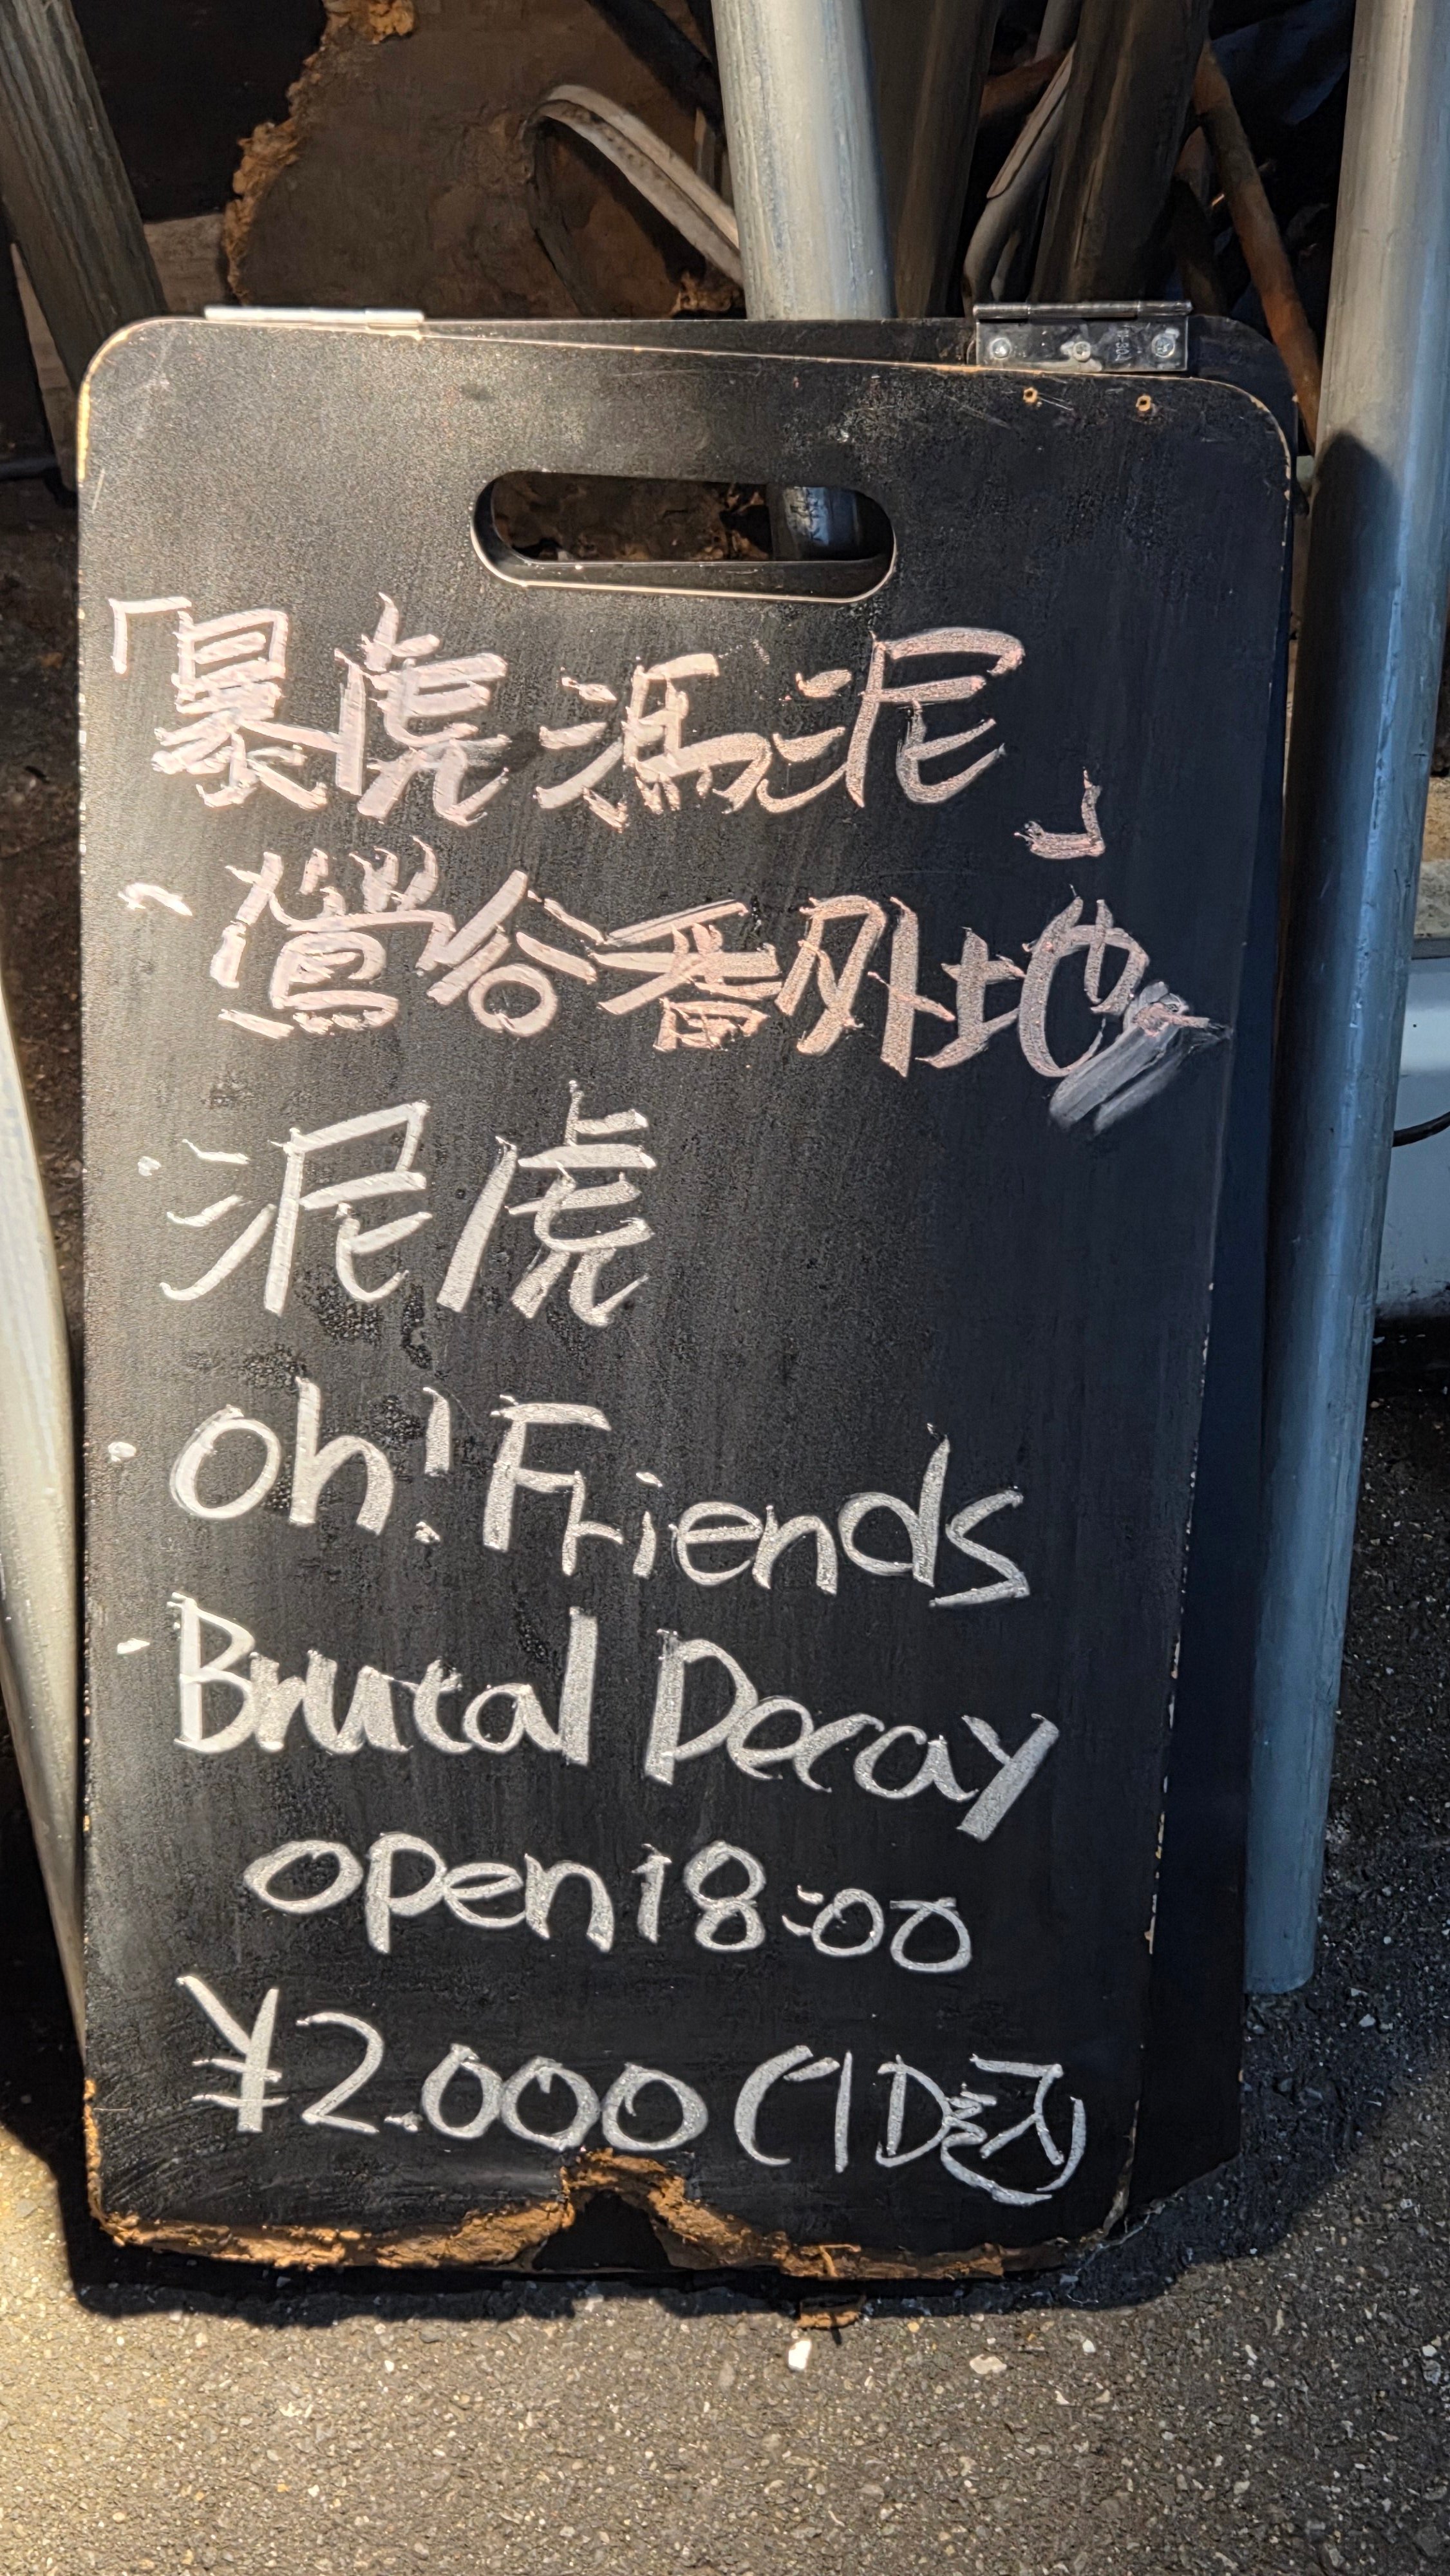 「暴虎馮泥」
〜鶯谷番外地〜
・泥虎
・Oh! Friends
・Brutal Decay
open 18:00
¥2.000 (1D込)